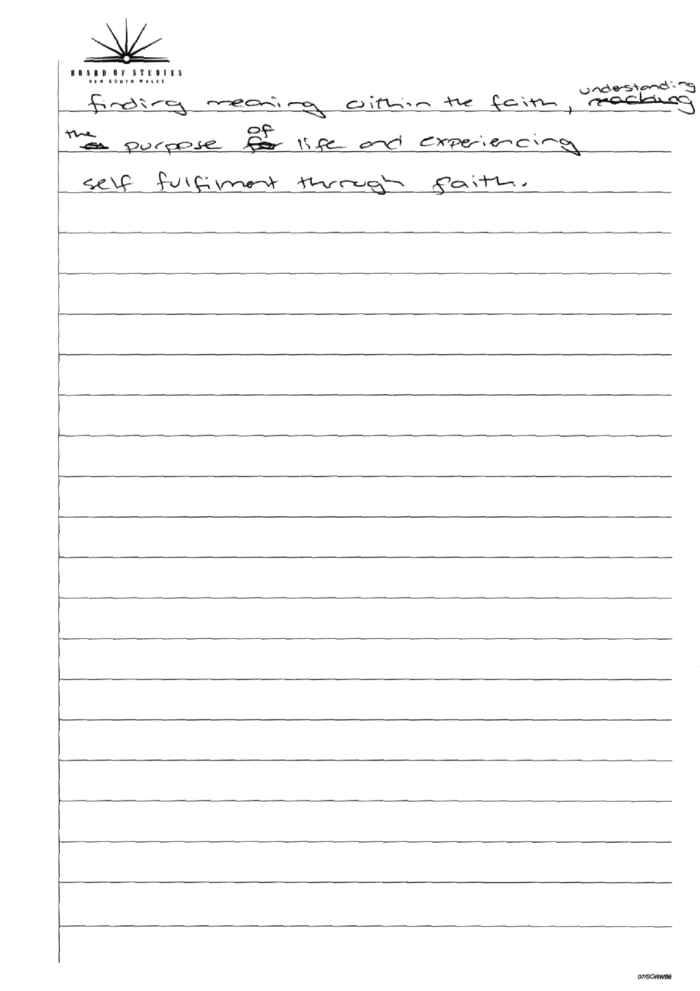 BOARD OF STUDIES
NEW SOUTH WALES
finding meaning within the faith, understanding
the purpose of life and experiencing
self fulfilment through faith.